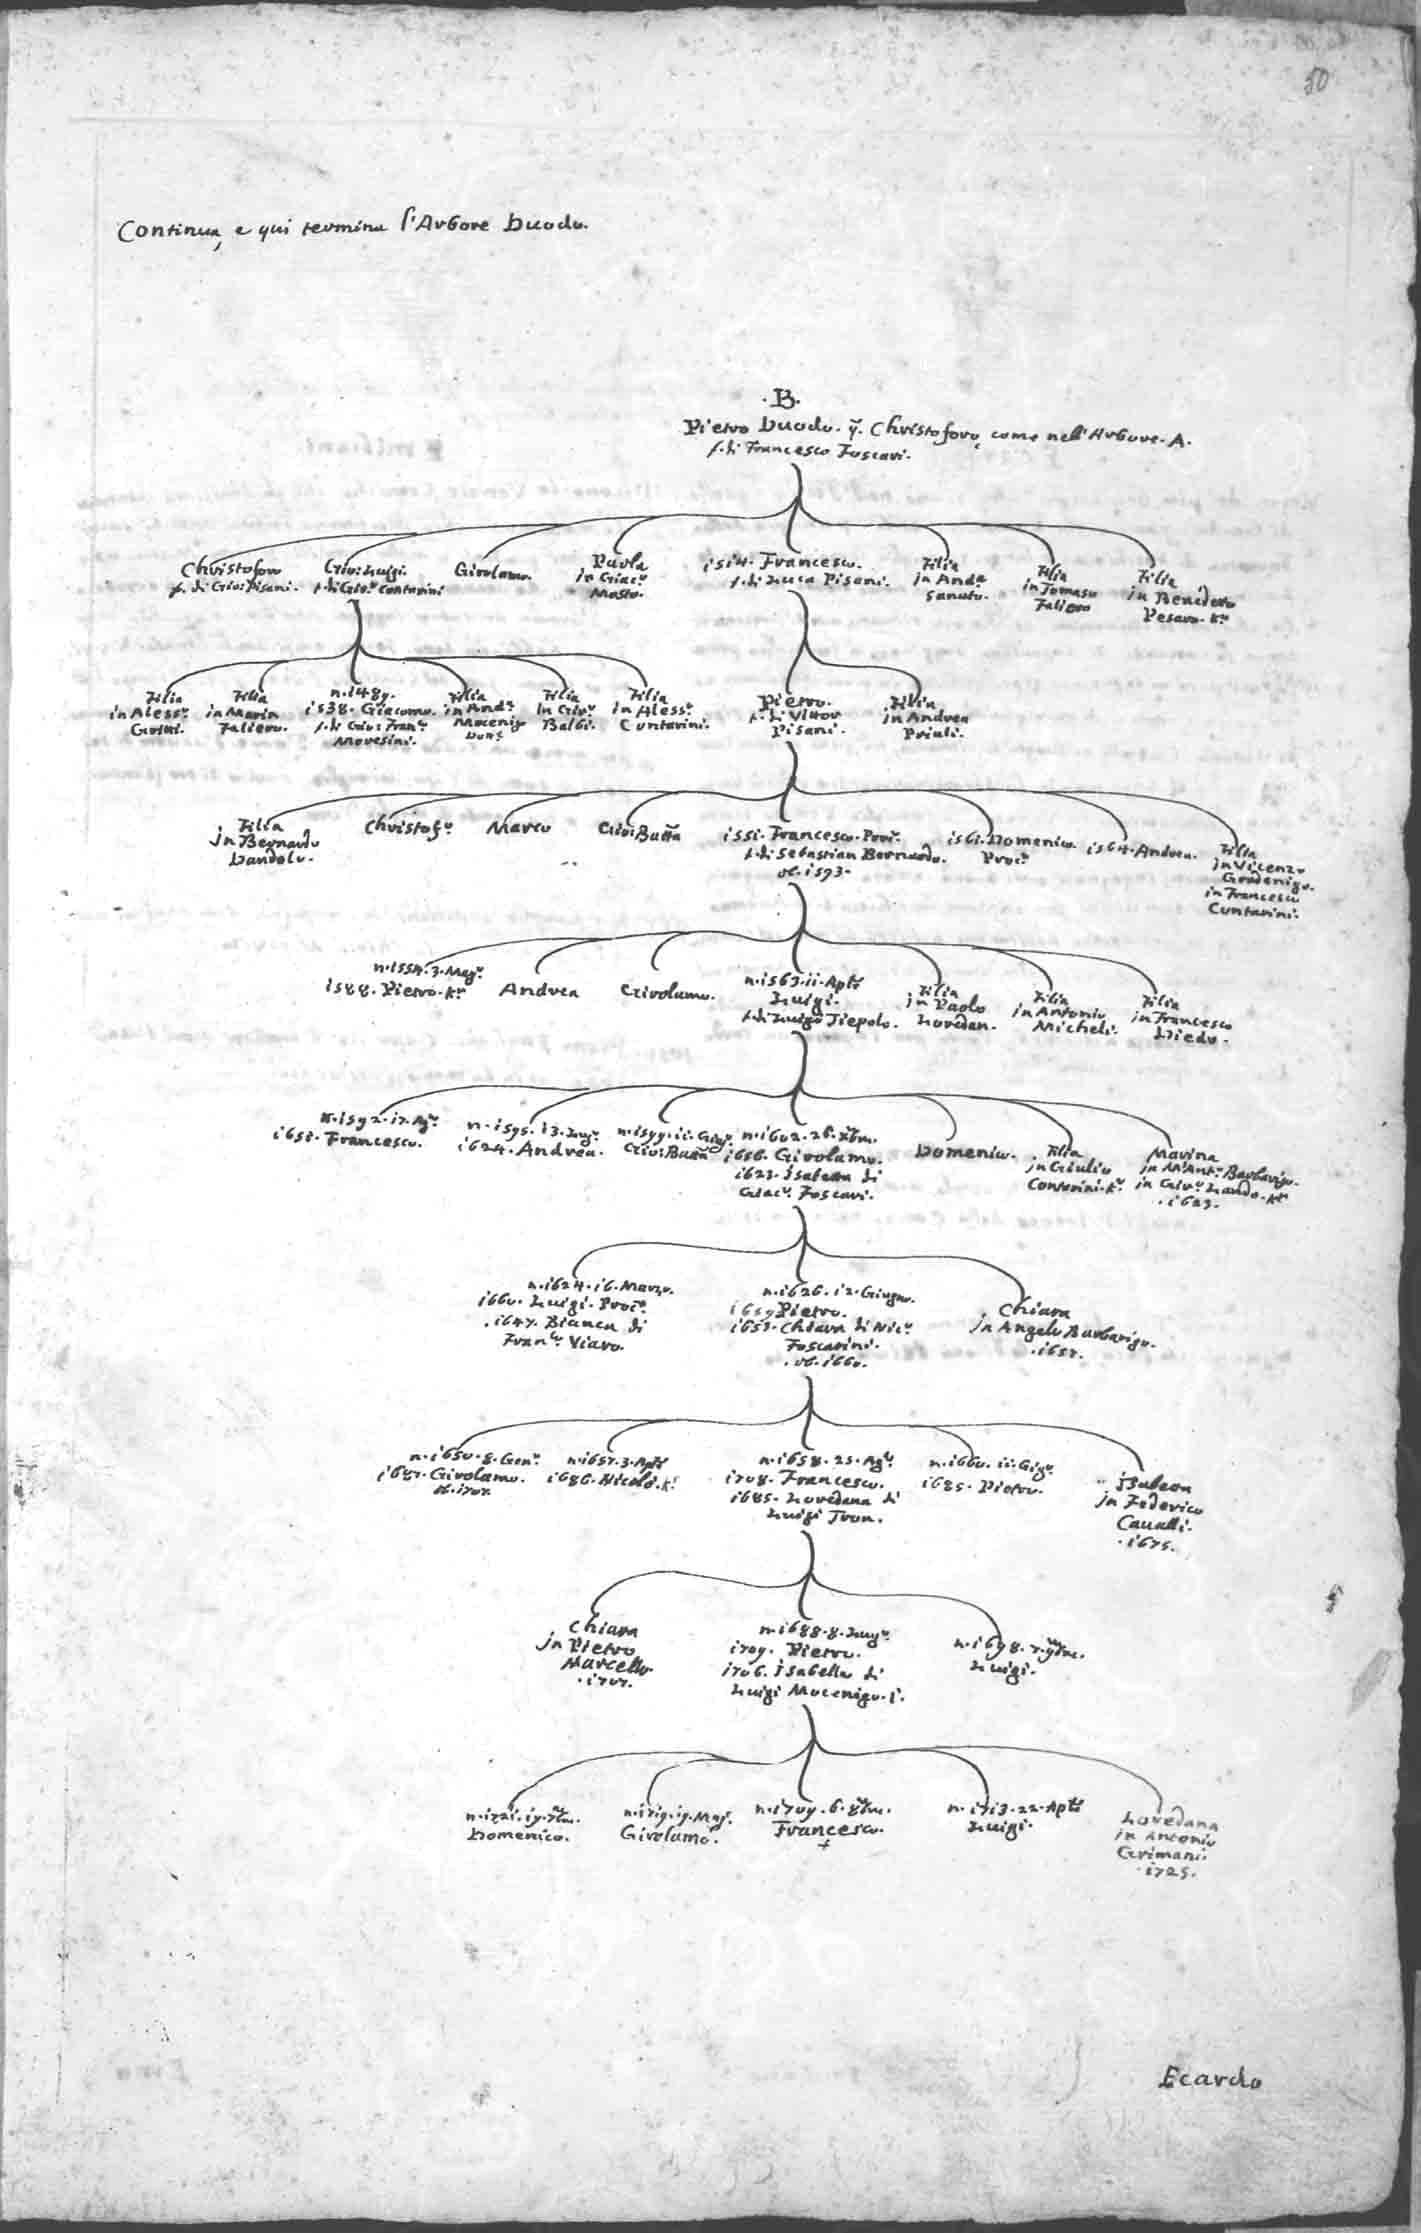 50
Continua, e qui termina l'Arbore Duodo.
.B.
Pietro Duodo. q. Christoforo, come nell'Arbore. A.
f. di Francesco Foscari.
Christoforo
f. di Gio: Pisani.
Gio: Luigi.
f. di Gio.º Contarini
Girolamo.
Paola
in Giac.º
Mosto.
1514. Francesco.
f. di Luca Pisani.
Filia
in And.ª
Sanuto.
Filia
in Tomaso
Faliero
Filia
in Benedeto
Pesaro. K.r
Filia
in Aless.º
Gritti.
Filia
in Marin
Faliero.
n. 1489.
1538. Giacomo.
f. di Gio: Fran.º
Moresini.
Filia
in And.ª
Mocenigo
Filia
in Gio.º
Balbi.
Filia
in Aless.º
Contarini.
Pietro.
f. di Vittor
Pisani.
Filia
in Andrea
Priuli.
Filia
in Bernardo
Dandolo.
Christof.º
Marco
Gio: Batta
1551. Francesco. Proc.r
f. di Sebastian Bernardo.
ob. 1593.
1561. Domenico.
Proc.r
1564. Andrea.
Filia
in Vicenzo
Gradenigo.
in Francesco
Contarini.
n. 1554. 3. Mag.º
1588. Pietro. K.r
Andrea
Girolamo.
n. 1563. ii. Aple
Luigi.
f. di Luigi Tiepolo.
Filia
in Paolo
Loredan.
Filia
in Antonio
Micheli.
Filia
in Francesco
Diedo.
n. 1592. 17. Ag.º
1651. Francesco.
n. 1595. 13. Lug.º
1624. Andrea.
n. 1599. ii. Giug.º
Gio: Batta
n. 1602. 26. Xbre.
1656. Girolamo.
1623. Isabetta di
Giac.º Foscari.
Domenico.
Filia
in Giulio
Contarini. K.r
Marina
in M. Ant.º Barbarigo.
in Gio.º Lando. K.r
. 1623.
n. 1624. 16. Marzo.
1660. Luigi. Proc.r
. 1647. Bianca di
Fran.co Viaro.
n. 1626. 12. Giugno.
1659 Pietro.
1657. Chiara di Nic.º
Foscarini.
. ob. 1660.
Chiara
in Angelo Barbarigo.
. 1657.
n. 1650. 8. Gen.º
1687. Girolamo.
ob. 1707.
n. 1657. 3. Aple
1686. Nicolò. K.r
n. 1658. 25. Ag.º
1708. Francesco.
1685. Loredana di
Luigi Tron.
n. 1660. ii. Giug.º
1685. Pietro.
Isabetta
in Federico
Cavalli.
. 1675.
Chiara
in Pietro
Marcello.
. 1707.
n. 1688. 8. Lug.º
1709. Pietro.
1706. Isabella di
Luigi Mocenigo. 1.º
n. 1698. 7. 9bre.
Luigi.
n. 1721. 19. 7bre.
Domenico.
n. 1719. 19. Mag.
Girolamo.
n. 1709. 6. 8bre.
Francesco.
+
n. 1713. 22. Aple
Luigi.
Loredana
in Antonio
Grimani.
. 1725.
Ecardo